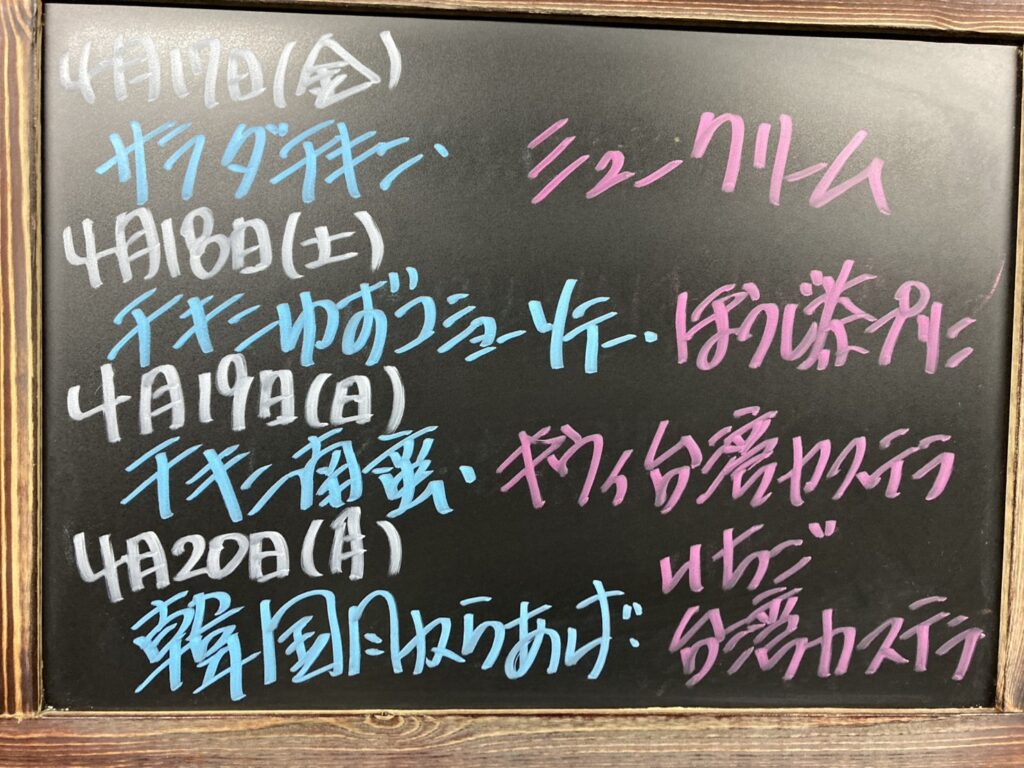 4月17日(金)
サラダチキン・ シュークリーム
4月18日(土)
チキンゆずコショーソテー・ほうじ茶プリン
4月19日(日)
チキン南蛮・キウイ台湾カステラ
4月20日(月)
韓国風からあげ・
いちご
台湾カステラ